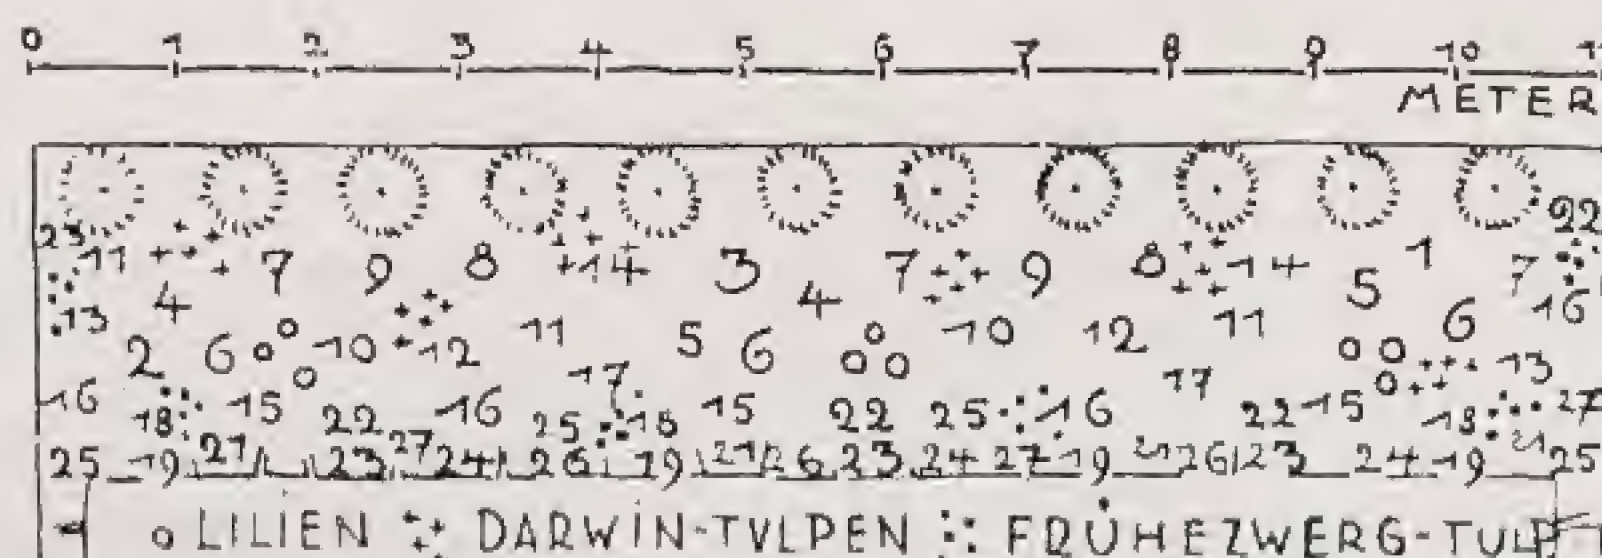 0 1 2 3 4 5 6 7 8 9 10
METER
23 22
11 7 9 8 14 3 7 9 8 14 5 1 7
13 4 4 6 16
2 6 10 12 11 5 6 10 12 11 13
16 18 15 22 16 17 25 18 15 22 25 16 17 22 15 18 27
25 19 21 23 27 24 26 19 21 26 23 24 27 19 21 26 23 24 19 21 25
o LILIEN DARWIN-TVLPEN FRÜHE ZWERG-TULP